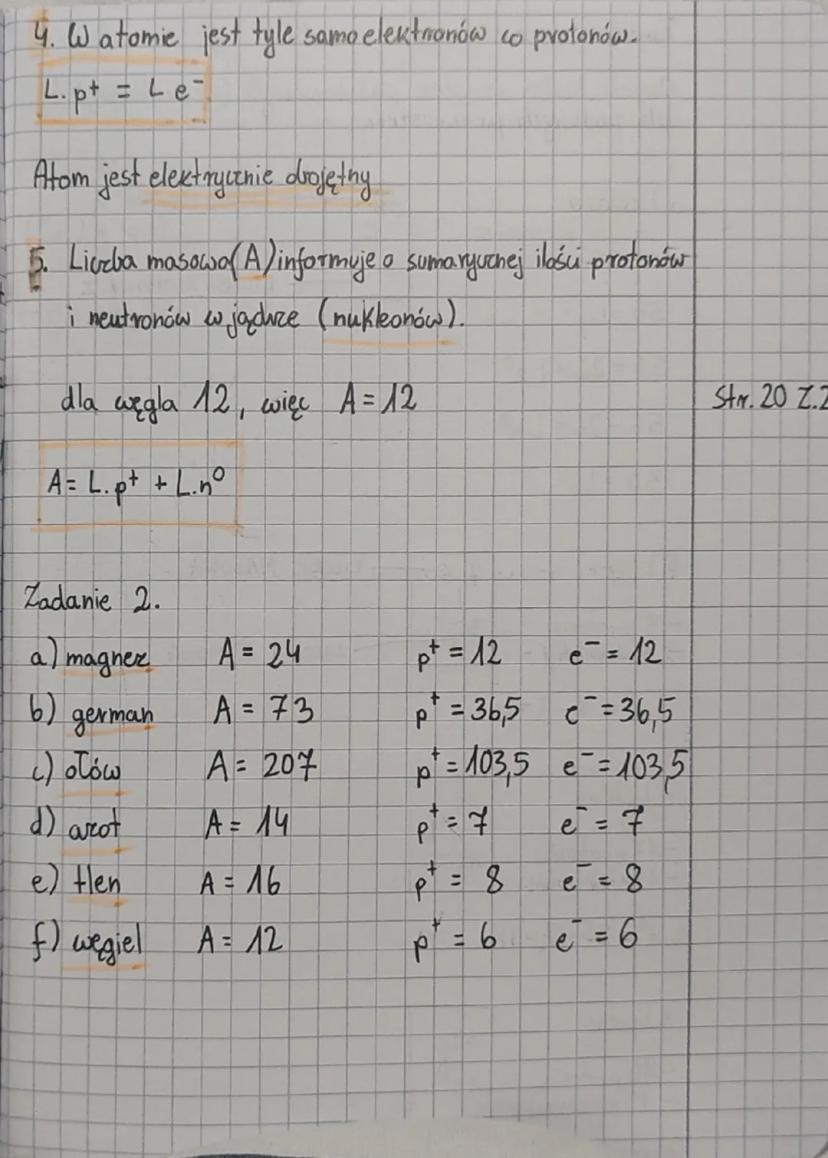 4. W atomie jest tyle samo elektronów co protonów.
L.p⁺ = L e⁻
Atom jest elektrycznie obojętny
5. Liczba masowa (A) informuje o sumarycznej ilości protonów
i neutronów w jądrze (nukleonów).
dla węgla 12, więc A = 12
Str. 20 Z.2
A = L.p⁺ + L.n⁰
Zadanie 2.
a) magnez A = 24 p⁺ = 12 e⁻ = 12
b) german A = 73 p⁺ = 36,5 e⁻ = 36,5
c) ołów A = 207 p⁺ = 103,5 e⁻ = 103,5
d) azot A = 14 p⁺ = 7 e⁻ = 7
e) tlen A = 16 p⁺ = 8 e⁻ = 8
f) węgiel A = 12 p⁺ = 6 e⁻ = 6